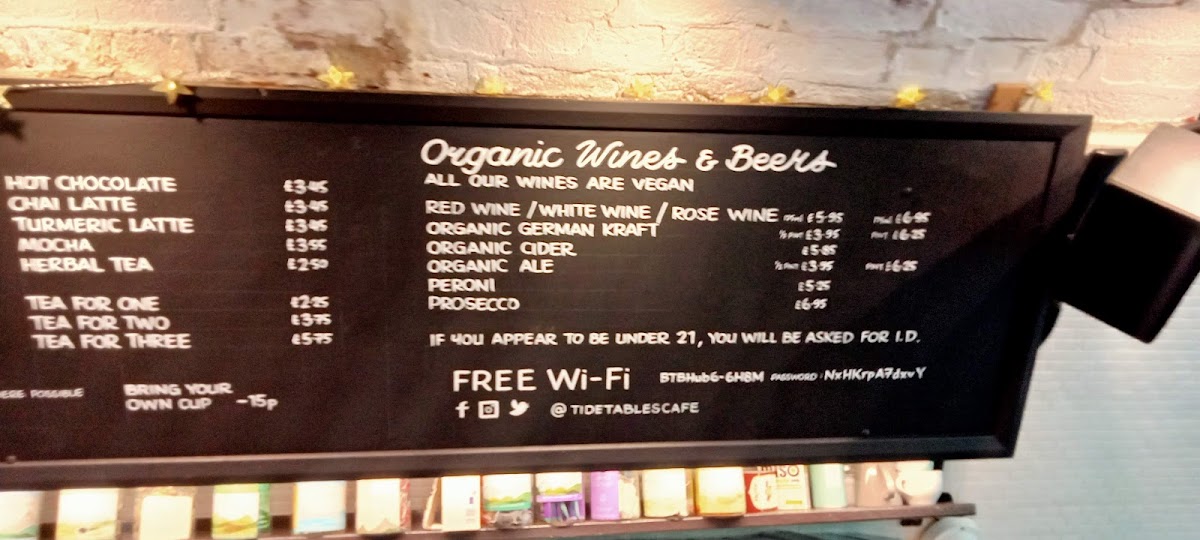 HOT CHOCOLATE £3.45
CHAI LATTE £3.45
TURMERIC LATTE £3.45
MOCHA £3.55
HERBAL TEA £2.50
TEA FOR ONE £2.25
TEA FOR TWO £3.75
TEA FOR THREE £5.75
POSSIBLE
BRING YOUR
OWN CUP -15p
Organic Wines & Beers
ALL OUR WINES ARE VEGAN
RED WINE / WHITE WINE / ROSE WINE £5.95 £6.95
ORGANIC GERMAN KRAFT ½ PINT £3.95 PINT £6.25
ORGANIC CIDER £5.85
ORGANIC ALE ½ PINT £3.95 PINT £6.25
PERONI £5.25
PROSECCO £6.95
IF YOU APPEAR TO BE UNDER 21, YOU WILL BE ASKED FOR I.D.
FREE Wi-Fi BTBHub6-6H8M PASSWORD: NxHKrpA7dxvY
@TIDETABLESCAFE